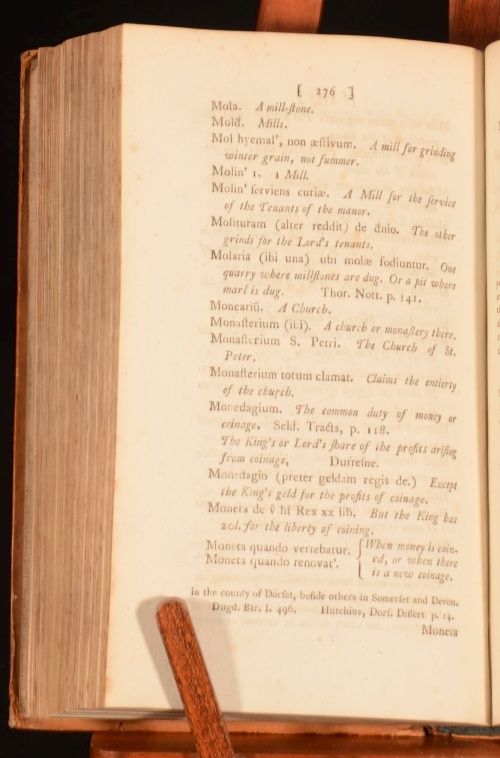 [ 276 ]
Mola. A mill-ſtone.
Mold̃. Mills.
Mol hyemal', non æſtivum. A mill for grinding
winter grain, not ſummer.
Molin' 1. 1 Mill.
Molin' ſerviens curiæ. A Mill for the ſervice
of the Tenants of the manor.
Molituram (alter reddit) de dnio. The other
grinds for the Lord's tenants.
Molaria (ibi una) ubi molæ fodiuntur. One
quarry where millſtones are dug. Or a pit where
marl is dug. Thor. Nott. p. 141.
Moneariũ. A Church.
Monaſterium (ibi). A church or monaſtery there.
Monaſterium S. Petri. The Church of St.
Peter.
Monaſterium totum clamat. Claims the entierty
of the church.
Monedagium. The common duty of money or
coinage. Seld. Tracts, p. 118.
The King's or Lord's ſhare of the profits ariſing
from coinage, Dufreſne.
Monedagio (preter geldam regis de.) Except
the King's geld for the profits of coinage.
Moneta de v̂ ht̃ Rex xx lib. But the King has
20l. for the liberty of coining.
Moneta quando vertebatur. { When money is coin-
Moneta quando renovat'. ed, or when there
is a new coinage.
In the county of Dorſet, beſide others in Somerſet and Devon.
Dugd. Bar. I. 496. Hutchins, Dorſ. Diſſert. p. 14.
Moneta